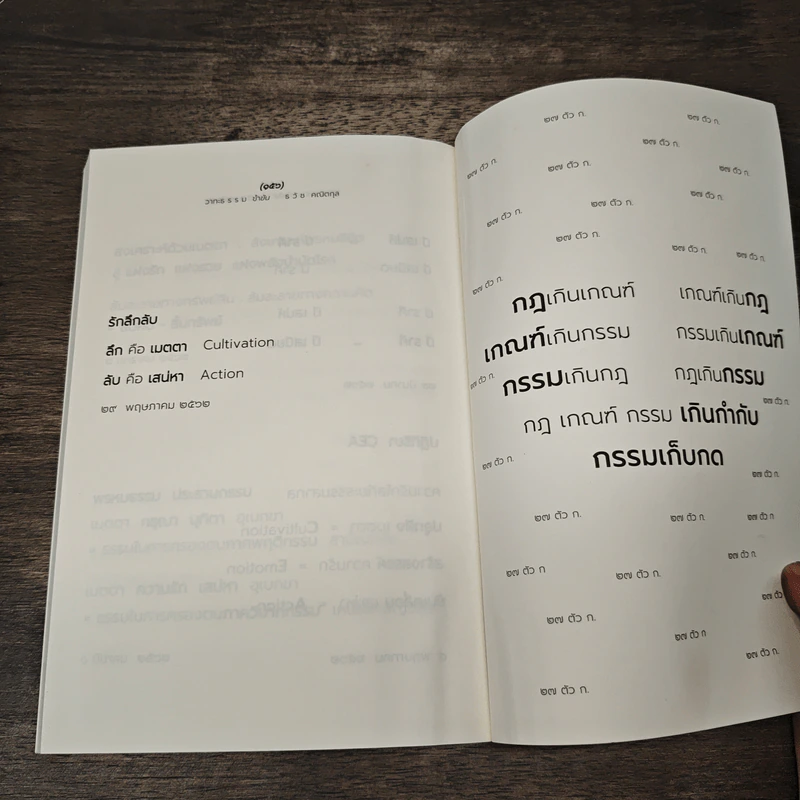 (๑๕๖)
วาทะธรรม ขำขัน ธวัช คณิตกุล
รักลึกลับ
ลึก คือ เมตตา Cultivation
ลับ คือ เสน่หา Action
๒๙ พฤษภาคม ๒๕๖๒
๒๗ ตัว ก.
๒๗ ตัว ก.
๒๗ ตัว ก.
๒๗ ตัว ก.
๒๗ ตัว ก.
๒๗ ตัว ก.
๒๗ ตัว ก.
๒๗ ตัว ก.
๒๗ ตัว ก.
๒๗ ตัว ก.
๒๗ ตัว ก.
๒๗ ตัว ก.
๒๗ ตัว ก.
๒๗ ตัว ก.
กฎเกินเกณฑ์ เกณฑ์เกินกฎ
เกณฑ์เกินกรรม กรรมเกินเกณฑ์
๒๗ ตัว ก.
กรรมเกินกฎ กฎเกินกรรม
๒๗ ตัว ก.
กฎ เกณฑ์ กรรม เกินกำกับ
กรรมเก็บกด
๒๗ ตัว ก.
๒๗ ตัว ก.
๒๗ ตัว ก.
๒๗ ตัว ก.
๒๗ ตัว ก.
๒๗ ตัว ก.
๒๗ ตัว ก
๒๗ ตัว ก.
๒๗ ตัว ก.
๒๗ ตัว ก.
๒๗ ตัว ก
๒๗ ตัว ก.
๒๗ ตัว ก.